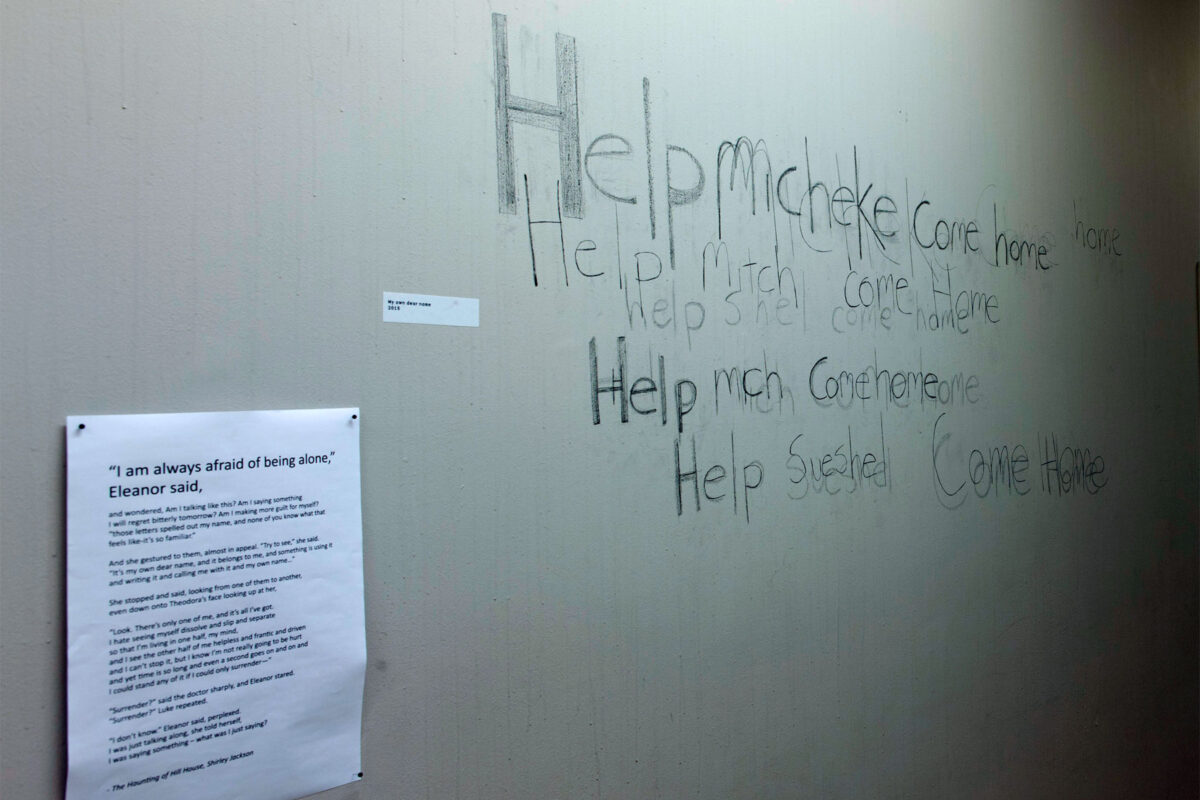 Help micheke Come home home
Help Mitch come Home
Help Shel come home me
Help mch Comehomeome
Help Sueshed Come Home
My own dear name
2015
“I am always afraid of being alone,”
Eleanor said,
and wondered, Am I talking like this? Am I saying something
I will regret bitterly tomorrow? Am I making more guilt for myself?
“those letters spelled out my name, and none of you know what that
feels like-it’s so familiar.”
And she gestured to them, almost in appeal. “Try to see,” she said.
“It’s my own dear name, and it belongs to me, and something is using it
and writing it and calling me with it and my own name...”
She stopped and said, looking from one of them to another,
even down onto Theodora’s face looking up at her,
“Look. There’s only one of me, and it’s all I’ve got.
I hate seeing myself dissolve and slip and separate
so that I’m living in one half, my mind,
and I see the other half of me helpless and frantic and driven
and I can’t stop it, but I know I’m not really going to be hurt
and yet time is so long and even a second goes on and on and
I could stand any of it if I could only surrender—”
“Surrender?” said the doctor sharply, and Eleanor stared.
“Surrender?” Luke repeated.
“I don’t know.” Eleanor said, perplexed.
I was just talking along, she told herself,
I was saying something – what was I just saying?
- The Haunting of Hill House, Shirley Jackson